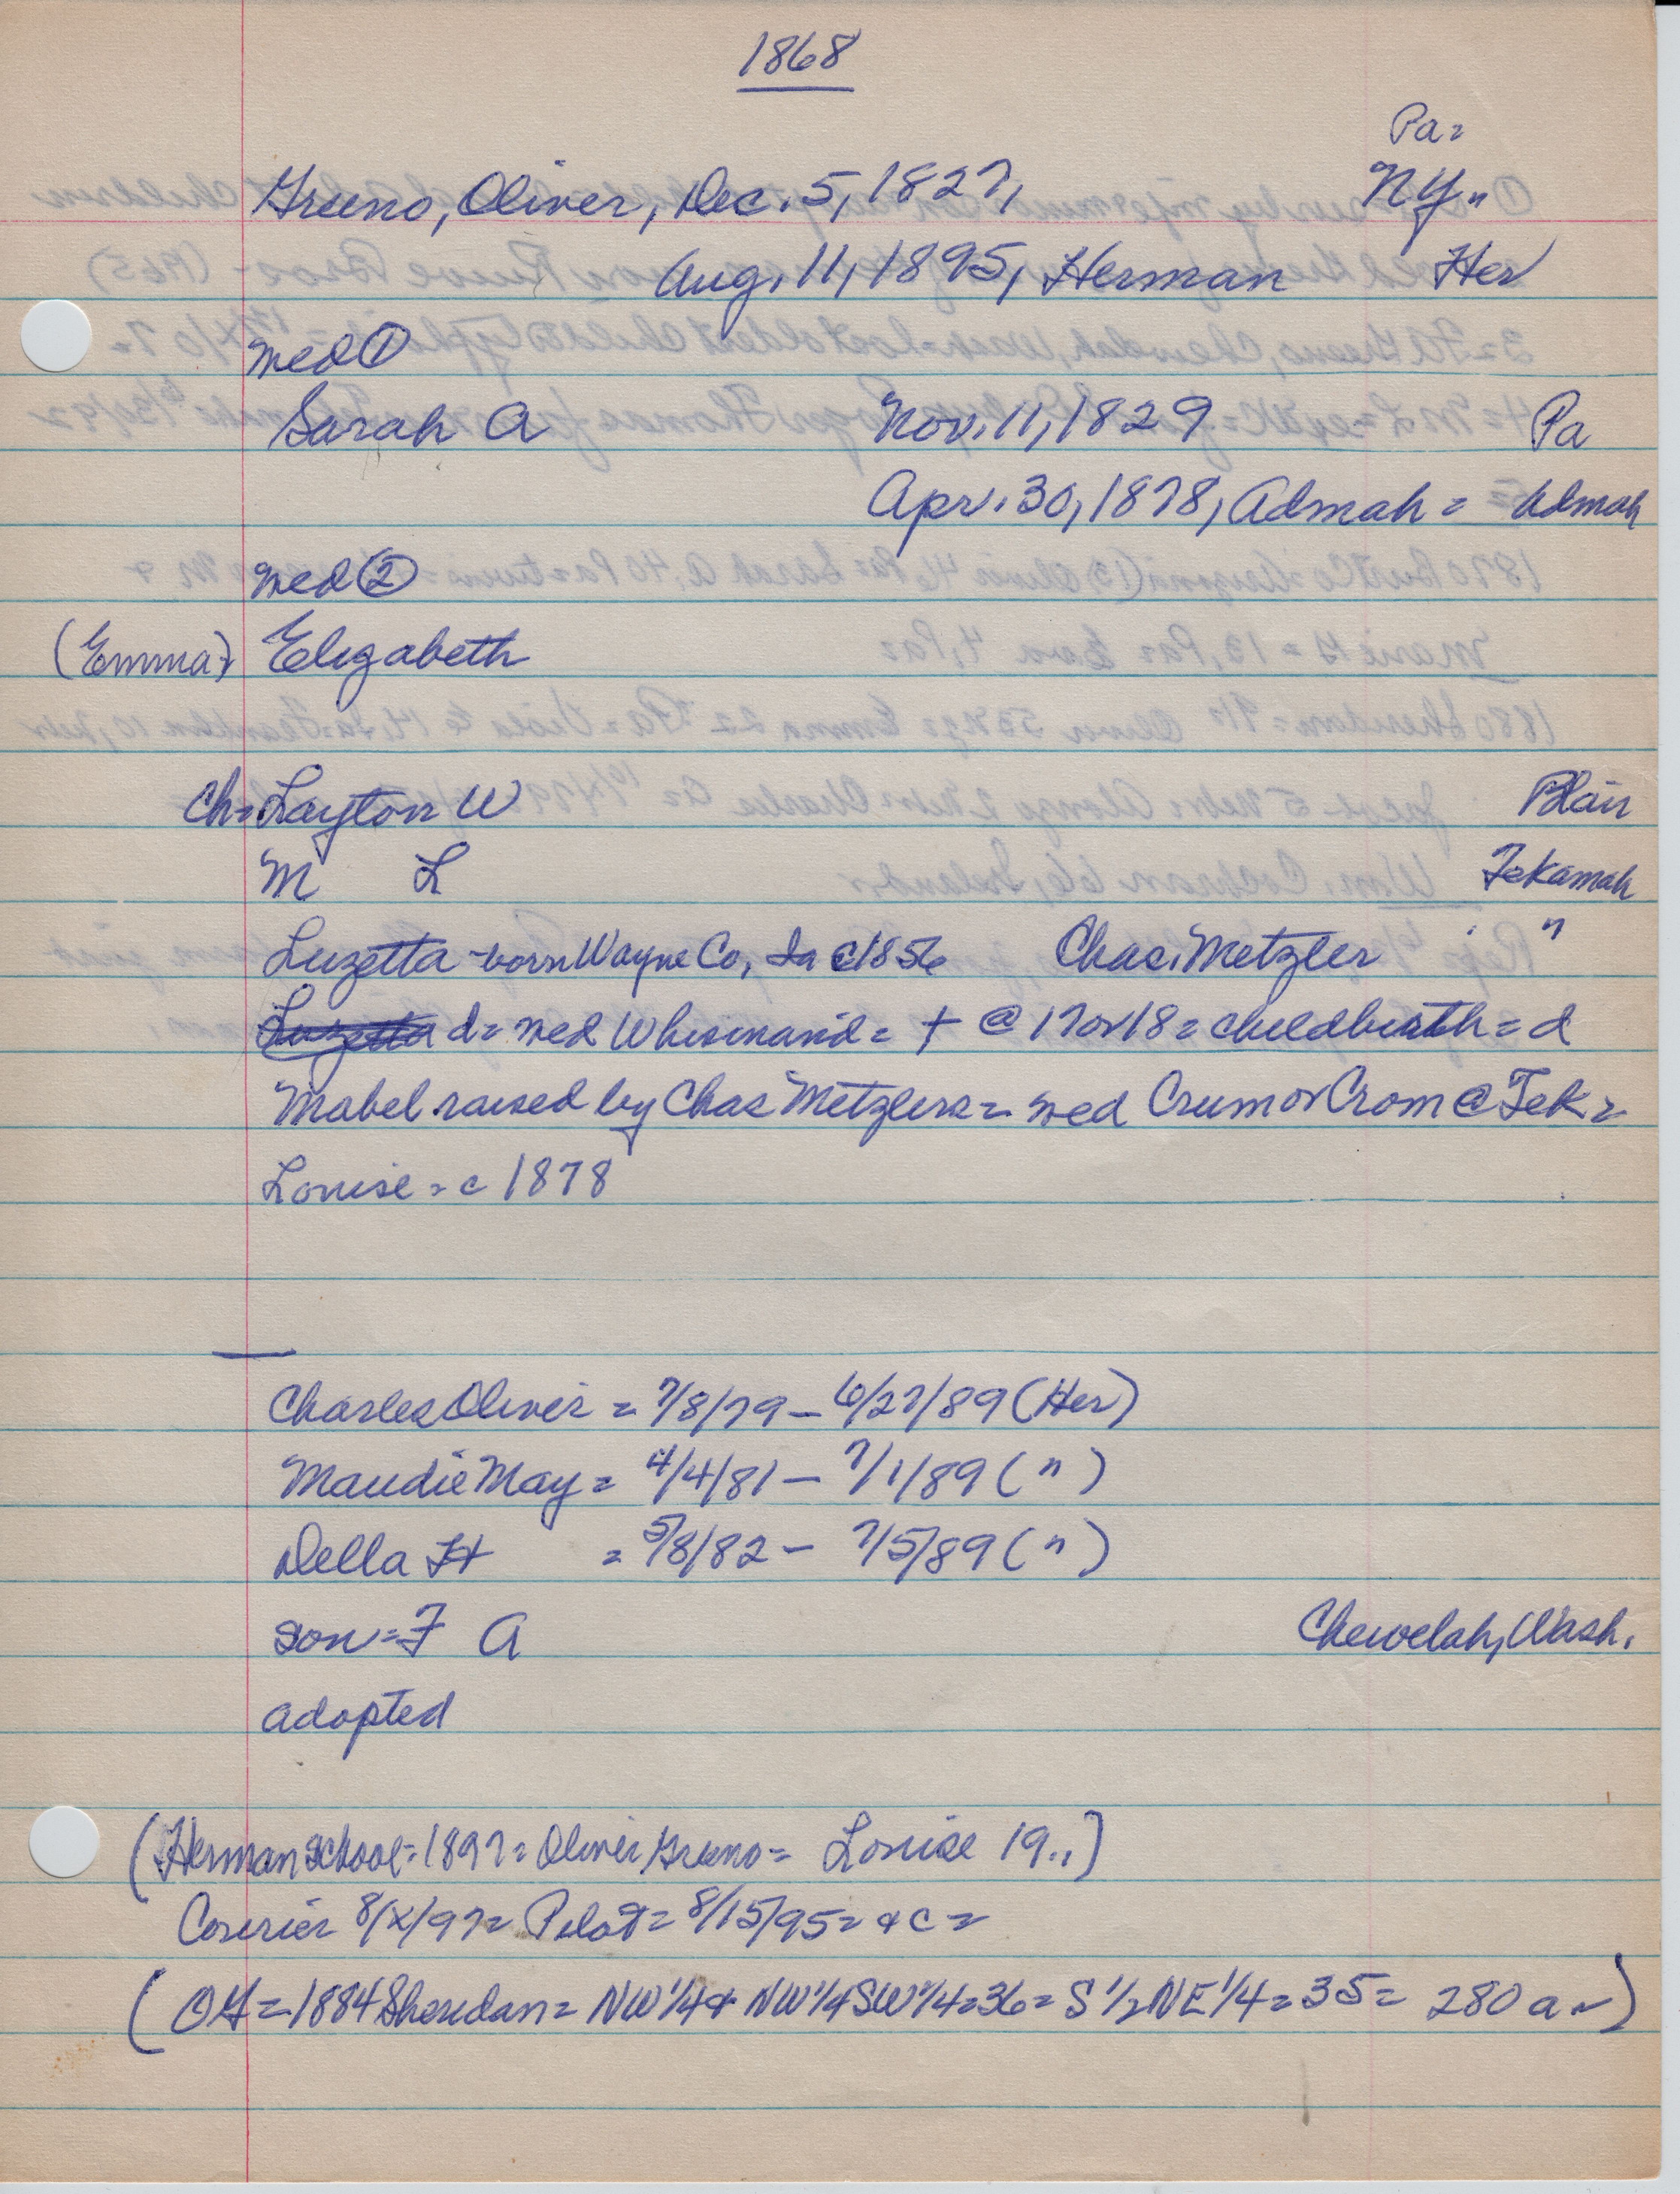 1868
Pa =
Greeno, Oliver, Dec. 5, 1827, NY "
Aug. 11, 1895, Herman Her
wed ①
Sarah A Nov. 11, 1829 Pa
Apr. 30, 1878, Admah = Admah
wed ②
(Emma) Elizabeth
ch = Layton W Blair
M L Tekamah
Luzetta - born Wayne Co, Ia c1856 Chas. Metzler "
Luzetta d = wed Whisinand = † @ 17 or 18 = childbirth = d
Mabel raised by Chas Metzlers = wed Crum or Crom @ Tek =
Louise = c 1878
Charles Oliver = 7/8/79 - 6/27/89 (Her)
Maudie May = 4/4/81 - 7/1/89 (")
Della H = 5/8/82 - 7/5/89 (")
son = F A Chewelah, Wash.
adopted
(Herman School = 1897 = Oliver Greeno = Louise 19..)
Courier 8/x/97 = Pilot = 8/15/95 = & c =
(OG = 1884 Sheridan = NW 1/4 & NW 1/4 SW 1/4 = 36 = S 1/2 NE 1/4 = 35 = 280 a ~)